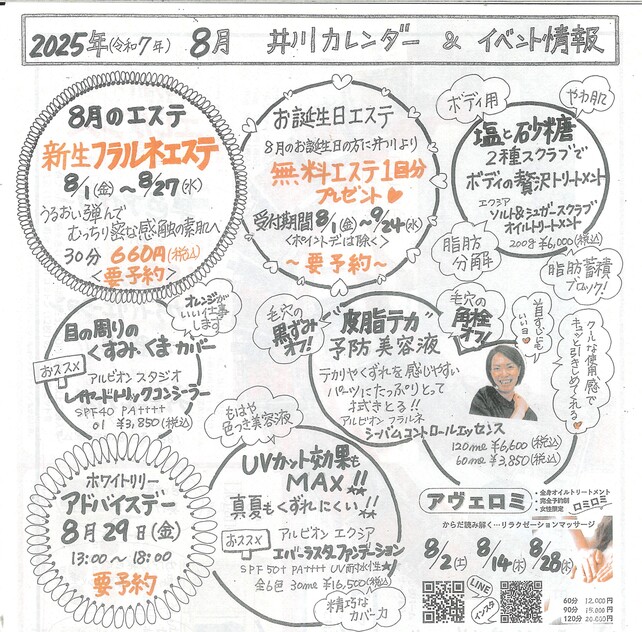 2025年(令和7年) 8月 井川カレンダー & イベント情報
8月のエステ
新生フラルネエステ
8/1(金)〜8/27(水)
うるおい弾んで
むっちり密な感触の素肌へ
30分 660円(税込)
<要予約>
お誕生日エステ
8月のお誕生日の方に井川より
無料エステ1回分
プレゼント♥
受付期間 8/1(金)〜9/24(水)
<ポイントデーは除く>
〜要予約〜
ボディ用
やわ肌
塩と砂糖
2種スクラブで
ボディの贅沢トリートメント
エクシア
ソルト&シュガースクラブ
オイルトリートメント
200g ¥6,000(税込)
脂肪
分解
脂肪蓄積
ブロック!
オレンジが
いい仕事
します
目の周りの
くすみ、くまカバー
おススメ
アルビオン スタジオ
レイヤードトリックコンシーラー
SPF40 PA++++
01 ¥3,850(税込)
毛穴の
黒ずみ
オフ!
毛穴の
角栓
オフ!
"皮脂テカ"
予防美容液
テカリやくずれを感じやすい
パーツにたっぷりとって
拭きとる!!
アルビオン フラルネ
シーバムコントロールエッセンス
120ml ¥6,600(税込)
60ml ¥3,850(税込)
首すじにも
いいョ♡
クールな使用感で
キュッと引きしめてくれる♥
もはや
色つき美容液
UVカット効果も
MAX!!
真夏もくずれにくい!!
おススメ
アルビオン エクシア
エバーラスタファンデーション
SPF50+ PA++++ UV耐水性★
全6色 30ml ¥16,500(税込)
精巧な
カバー力
ホワイトリリー
アドバイスデー
8月29日(金)
13:00〜18:00
要予約
アヴェロミ
・全身オイルトリートメント
・完全予約制
・女性限定
ロミロミ
からだ読み解く…リラクゼーションマッサージ
8/2(土) 8/14(木) 8/28(木)
LINE
インスタ
60分 12,000円
90分 15,000円
120分 20,000円